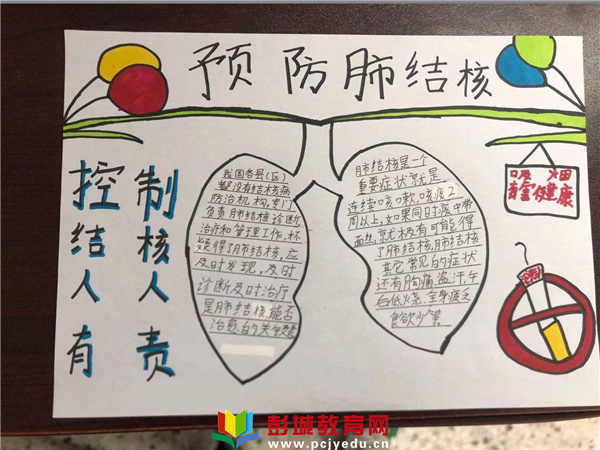 预防肺结核
控制
结核
人人
有责
我国各县(区)
都没有结核病
防治机构,专门
负责肺结核诊断
治疗和管理工作,怀
疑得了肺结核,应
及时发现,及时
诊断及时治疗
是肺结核能否
治愈的关键
肺结核是一个
重要症状就是
连续咳嗽,咳痰2
周以上,如果同时痰中带
血丝,就极有可能得
了肺结核,肺结核
其它常见的症状
还有胸痛,盗汗,午
后低烧,全身疲乏
食欲少等
吸烟
健康
彭城教育网
www.pcjyedu.cn